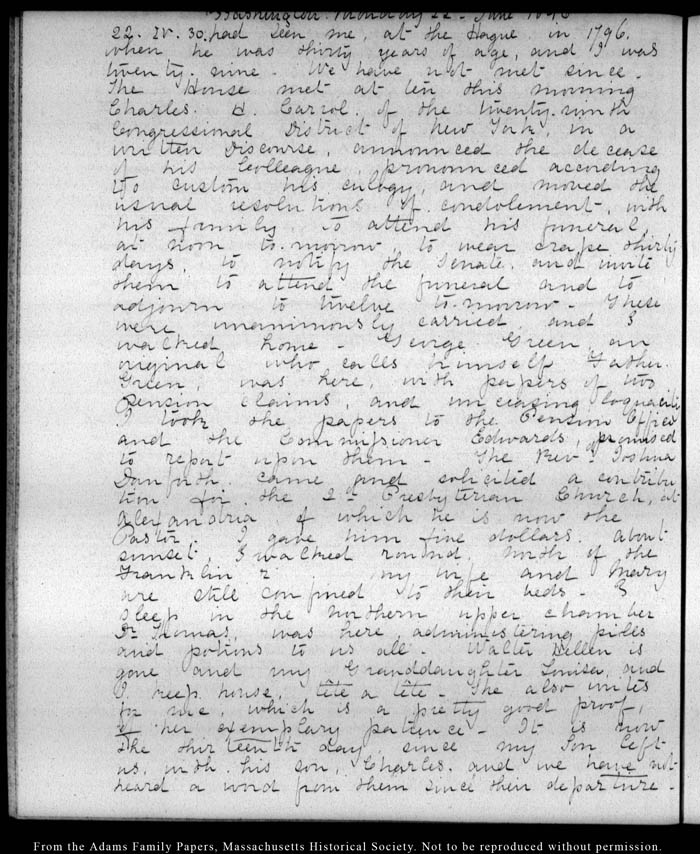 Washington Monday 22. June 1840
22. IV. 30. had seen me, at the Hague in 1796.
when he was thirty years of age, and I was
twenty-nine - We have not met since -
The House met at ten this morning
Charles H. Carrol, of the twenty-ninth
Congressional District of New York, in a
written Discourse, announced the decease
of his Colleague, pronounced according
to custom his eulogy, and moved the
usual resolutions of condolement, with
his family, to attend his funeral,
at noon to-morrow, to wear crape thirty
days, to notify the Senate, and invite
them to attend the funeral and to
adjourn to twelve to-morrow - These
were unanimously carried, and I
walked home - George Green, an
original who calls himself Father
Green, was here, with papers of two
Pension claims, and unceasing loquacity
I took the papers to the Pension Office
and the Commissioner Edwards, promised
to report upon them - The Revd. Joshua
Danforth came and solicited a contribu
tion for the 2d Presbyterian Church, at
Alexandria, of which he is now the
Pastor. I gave him five dollars. About
sunset, I walked round North of the
Franklin
My wife and Mary
are still confined to their beds - I
sleep in the northern upper chamber
Dr. Thomas, was here, administering pills
and potions to us all - Walter Hellen is
gone and my Granddaughter Louisa, and
I keep house, tête a tête - She also writes
for me, which is a pretty good proof,
of her exemplary patience - It is now
the thirteenth day, since my Son left
us, with his son, Charles, and we have not
heard a word from them since their departure -
From the Adams Family Papers, Massachusetts Historical Society. Not to be reproduced without permission.